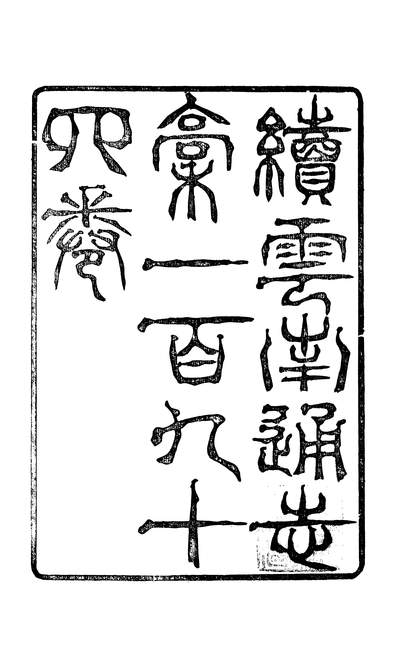 續雲南通志
稾一百九十
四卷